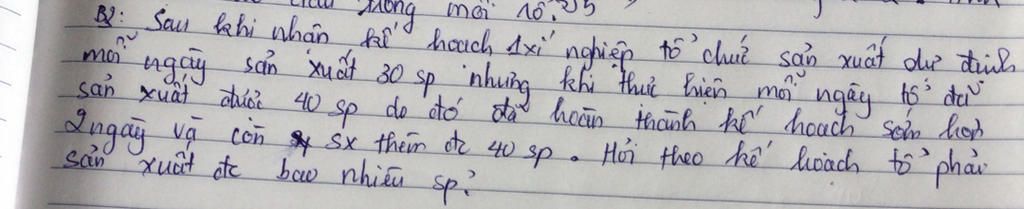 trong mỗi tổ. 25
B2: Sau khi nhận kế hoạch 1 xí nghiệp tổ chức sản xuất dự định
mỗi ngày sản xuất 30 sp nhưng khi thực hiện mỗi ngày tổ đã
sản xuất được 40 sp do đó đã hoàn thành kế hoạch sớm hơn
2 ngày và còn sx thêm đc 40 sp. Hỏi theo kế hoạch tổ phải
sản xuất đc bao nhiêu sp?